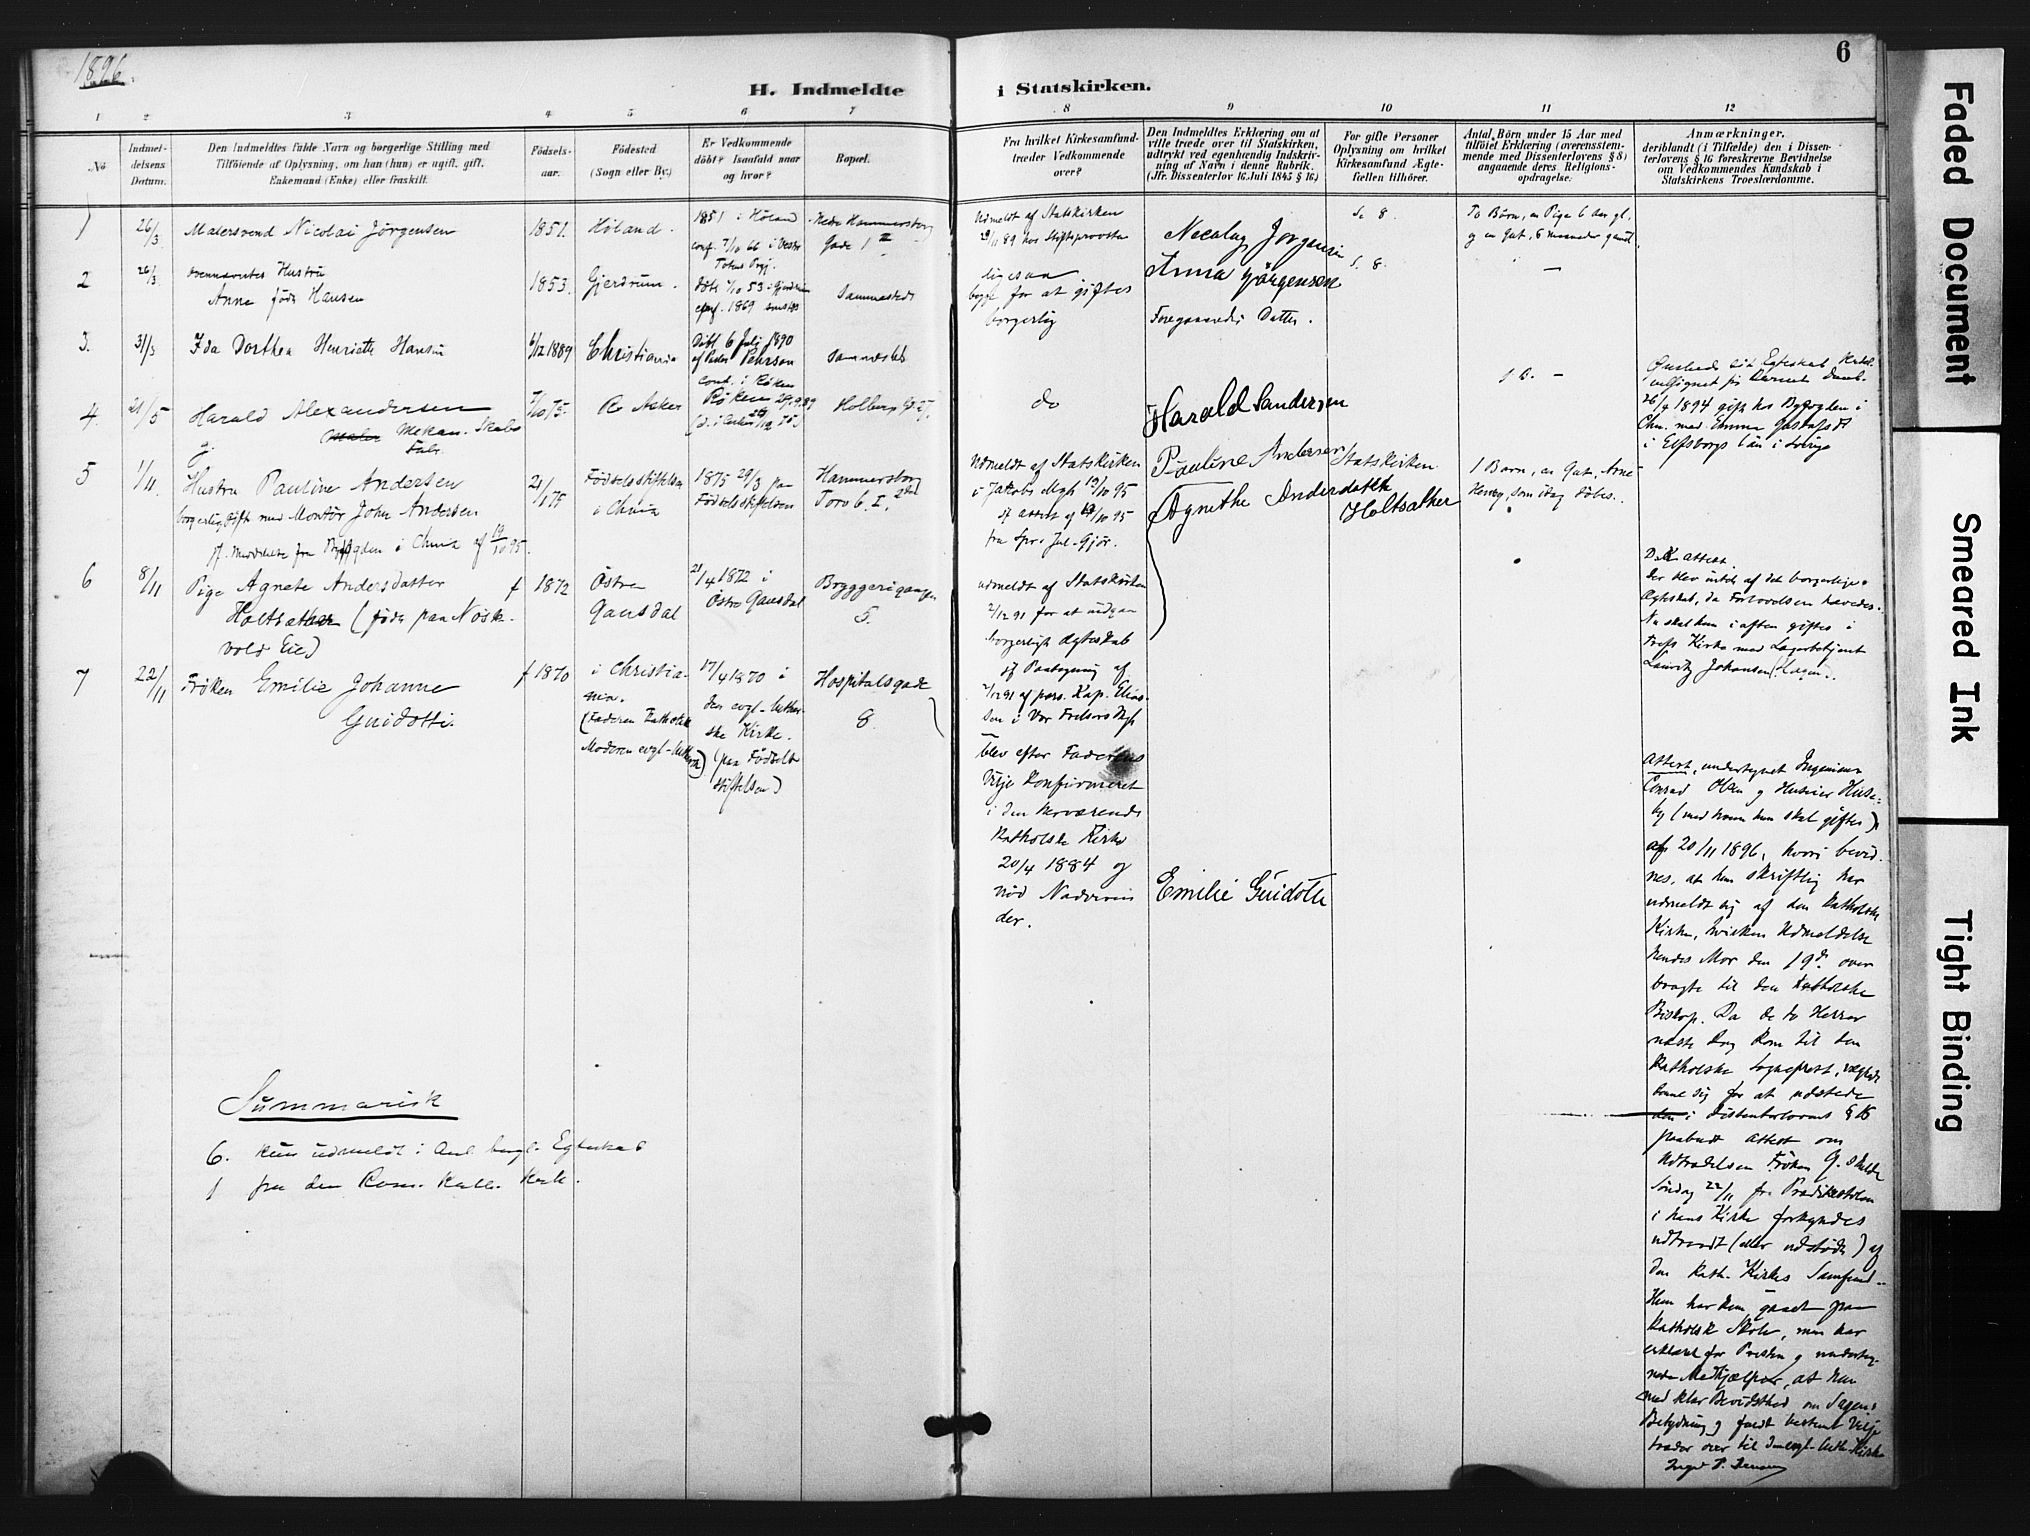 1896.
6
H. Indmeldte i Statskirken.
1 2 3 4 5 6 7 8 9 10 11 12
No
Indmel-
delsens
Datum.
Den Indmeldtes fulde Navn og borgerlige Stilling med
Tilföiende af Oplysning, om han (hun) er ugift, gift,
Enkemand (Enke) eller fraskilt.
Födsels-
aar.
Födested
(Sogn eller By.)
Er Vedkommende
döbt? Isaafald naar
og hvor?
Bopæl.
Fra hvilket Kirkesamfund-
træder Vedkommende
over?
Den Indmeldtes Erklæring om at
ville træde over til Statskirken,
udtrykt ved egenhændig Indskriv-
ning af Navn i denne Rubrik.
(Jfr. Dissenterlov 16. Juli 1845 § 16.)
For gifte Personer
Oplysning om hvilket
Kirkesamfund Ægte-
fællen tilhörer.
Antal Börn under 15 Aar med
tilföiet Erklæring (overensstem-
mende med Dissenterlovens § 8)
angaaende deres Religions-
opdragelse.
Anmærkninger,
deriblandt (i Tilfælde) den i Dissen-
terlovens § 16 foreskrevne Bevidnelse
om Vedkommendes Kundskab i
Statskirkens Troeslærdomme.
1
26/3
Malersvend Nicolai Jörgensen
1851.
Höland.
1851 i Höland
conf. 7/10 66 i Vestre
Totens Prgj.
Nedre Hammersborg
Gade 1 II
Udmeldt af Statskirken
89 hos Stiftsprovsten
Nicolay Jorgensen
Se 8.
To Börn, en Pige 6 Aar gl.
og en Gut, 6 maaneder gaml.
2
26/3
ovennævntes Hustru
Anne födt Hansen
1853.
Gjerdrum.
döbt 7/10 53 i Gjerdrum
conf. 1869 smstds
Sammesteds
ligesaa
begge for at giftes
borgerlig
Anna Jörgensen
S. 8.
—
3.
31/3
Ida Dorthea Henriette Hansen
6/12 1889
Christiania
Döbt 6 Juli 1890
Sammesteds
Foregaaendes Datter.
4
21/5
Harald Alexandersen
Maler Mekan. Skabs
Fabr.
g.
7/10 75.
Asker
conf. i Röken
Holbergs Gd 27.
do
Harald Sandersen
1 B. —
26/9 1894 gift hos Byfogden i
Chra. med Emma Gustafsdt
i Elfsborgs län i Sverige
5
1/11.
Hustru Pauline Andersen
borgerlig gift med Montör John Andersen
jf. meddelelse fra Byfogden i Chria af 19/10 95.
21/1 75
Födselsstiftelsen
i Chria
1875 29/3 paa
Födselsstiftelsen
Hammersborg
Torv 6. I.
Udmeldt af Statskirken
i Jakobs Mgh 19/10 95
jf. attest af 19/10 95
fra Spr. Jul. Gjör.
Pauline Andersen
Statskirken
1 Barn, en Gut, Arne
Henry, som idag döbes.
6
8/11
Pige Agnete Andersdatter
Holtsæther (född paa Nösk-
vold Eie)
f 1872
Östre
Gausdal
21/4 1872 i
Östre Gausdal
Bryggerigangen
5.
udmeldt af Statskirken
2/12 91 for at indgaa
borgerligt Ægteskab
jf Paategning af
2/12 91 af pers. Kap. Elias-
sen i Vor Frelsers Mgh
Agnethe Andersdatth
Holtsæther
D. K. attest.
Der blev intet af det borgerlige
Ægteskab, da Forlovelsen hævedes.
Nu skal hun i aften giftes i
Trefs Kirke med Lagerbetjent
Lauritz Johansen
7
22/11
Fröken Emilie Johanne
Guidotti.
f 1870
i Christia-
nia.
(Faderen Katholik
Moderen evgl-luthersk)
17/4 1870 i
den evgl-luther-
ske Kirke.
(paa Födsels-
stiftelsen)
Hospitalsgade
8.
blev efter Faderens
Vilje konfirmeret
i den herværende
katholske Kirke
20/4 1884 og
nöd Nadveren
der.
Emilie Guidotti
Attest, undertegnet Ingeniör
Conrad Olsen og Huseier Huse-
by (med hvem hun skal giftes)
af 20/11 1896, hvori bevid-
nes, at hun skriftlig har
udmeldt sig af den katholske
Kirke, hvilken Udmeldelse
hendes Mor den 19de over
bragte til den katholske
Biskop. Da de to Herrer
næste Dag kom til den
katholske Sogneprest, vægrede
denne sig for at udstede
den i Dissenterlovens § 16
paabudt Attest om
Udtrædelsen. Fröken G. skulde
Söndag 22/11 fra Prædikestolen
i hans Kirke forkyndes
udtraadt (eller udstödt) af
den kath. Kirkes Samfund.
Hun har kun gaaet paa
katholsk Skole, men har
erklært for Presten og underteg-
nede Medhjælper, at hun
med klar Bevidsthed om Sagens
Betydning og fuldt bestemt Vilje
træder over til den evgl-luth. Kirke
Summarisk
6. kun udmeldt i Anl. borgl. Egteskab
1 fra den Rom. Kath. Kirk.
Faded Document
Smeared Ink
Tight Binding